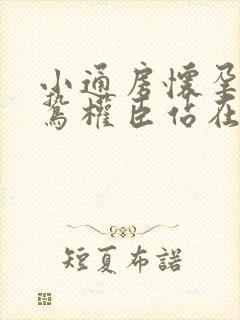 小通房懷孕
鷙權臣佔在
短夏布諾